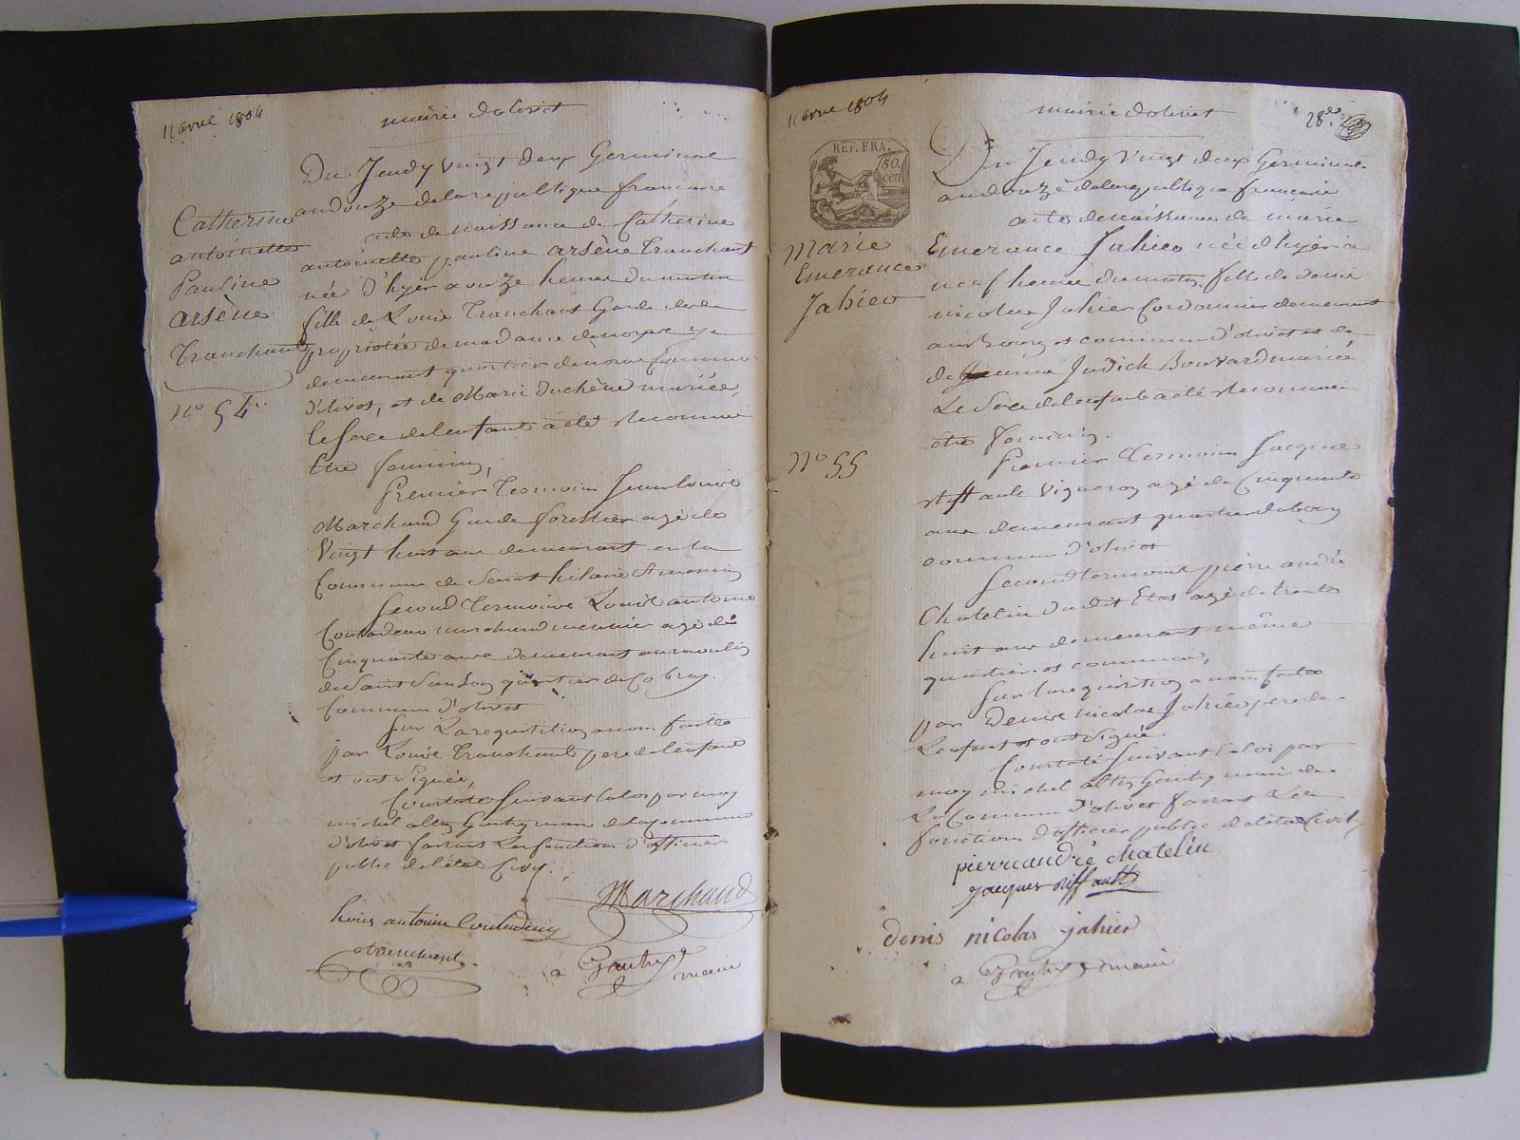 11 avril 1804
mairie d'olivet
Du Jeudy vingt deux Germinal
an douze de la republique francaise
acte de naissance de Catherine
antoinette pauline arsène Tranchant
née d'hyer a onze heures du matin
fille de Louis Tranchant Garde de la
propriétée de madame
demeurant quartier commune
d'olivet, et de Marie Duchêne mariée
le Sexe de lenfant a été reconnue
être feminin,
Premier Termoins Jean louis
Marchand Garde forestier agé de
Vingt huit ans demeurant en la
Commune de Saint hilaire St mesmin
Second Termoins Louis antoine
marchand meunier agé de
Cinquante ans demeurant au moulin
de Saint Samson quartier de Cobray
Commune d'olivet
Sur La requisition a nous faitte
par Louis Tranchant pere de lenfant
et ont signée,
Constaté Suivant la loi par moy
michel alter Gautry maire de la commune
d'olivet faisant Les fonctions d'officier
public de l'état Civil.
Marchand
louis antoine
tranchant
a Gautry maire
Catherine
antoinette
Pauline
arsène
Tranchant
No 54
11 avril 1804
mairie d'olivet
28
REP. FRA.
50
cen
Du Jeudy Vingt deux Germinal
an douze de la republique francaise
acte de naissance de marie
Emerance Jahier née d'hyer a
neuf heures du matin fille de denis
nicolas Jahier Cordonnier demeurant
au bourg et commune d'olivet et de
de Judick Bouvard mariée
Le Sexe de lenfant a été reconnue
être feminin.
Premier Termoins Jacques
Riffault Vigneron agé de Cinquante
ans demeurant quartier
commune d'olivet
Second termoins pierre andré
Chatelin dudit Etat agé de trente
huit ans demeurant même
quartier et commune,
Sur la requisition a nous faitte
par Denis nicolas Jahier pere de
Lenfant et ont signé
Constaté Suivant la loi par
moy michel alter Gautry maire de
La Commune d'olivet faisant Les
fonctions d'officier public de l'état Civil
pierre andré chatelin
jacques Riffault
denis nicolas jahier
a Gautry maire
Marie
Emerance
Jahier
No 55